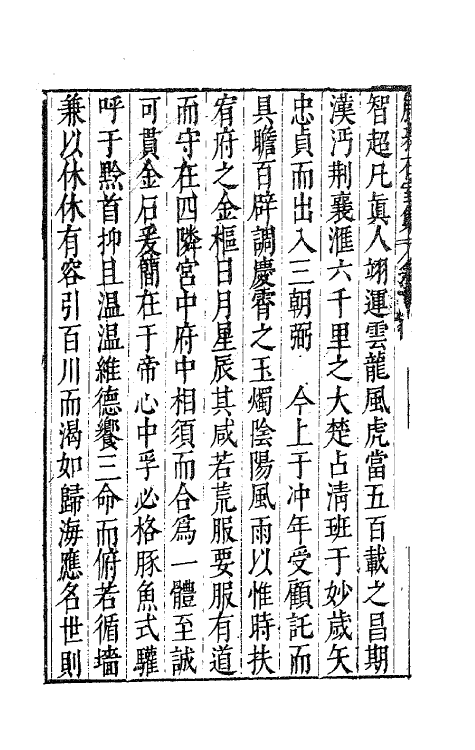 智超凡眞人翊運雲龍風虎當五百載之昌期
漢沔荆襄滙六千里之大楚占淸班于妙歲矢
忠貞而出入三朝弼　今上于冲年受顧託而
具瞻百辟調慶霄之玉燭陰陽風雨以惟時扶
宥府之金樞日月星辰其咸若荒服要服有道
而守在四隣宮中府中相須而合爲一體至誠
可貫金石爰簡在于帝心中孚必格豚魚式驩
呼于黔首抑且温温維德饗三命而俯若循墻
兼以休休有容引百川而渴如歸海應名世則